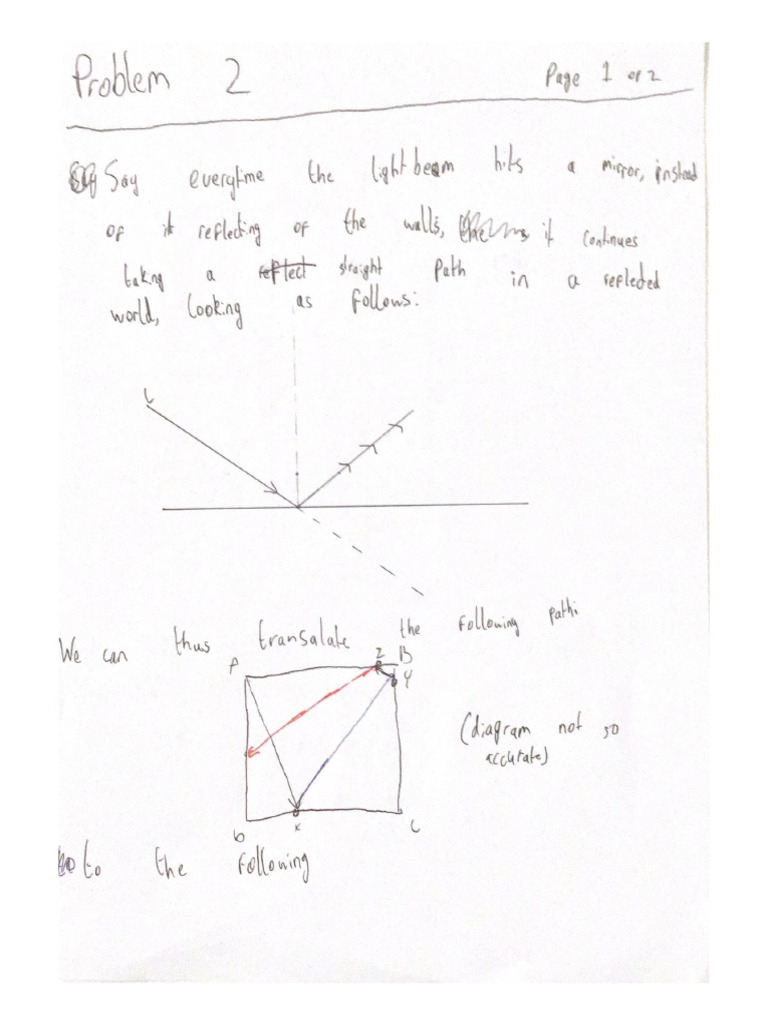 Problem 2
Page 1 of 2
Say everytime the light beam hits a mirror, instead
of it reflecting of the walls, it continues
taking a reflect straight path in a reflected
world, looking as follows:
L
We can thus transalate the following path:
A Z B
Y
(diagram not so
accurate)
D X C
to the following